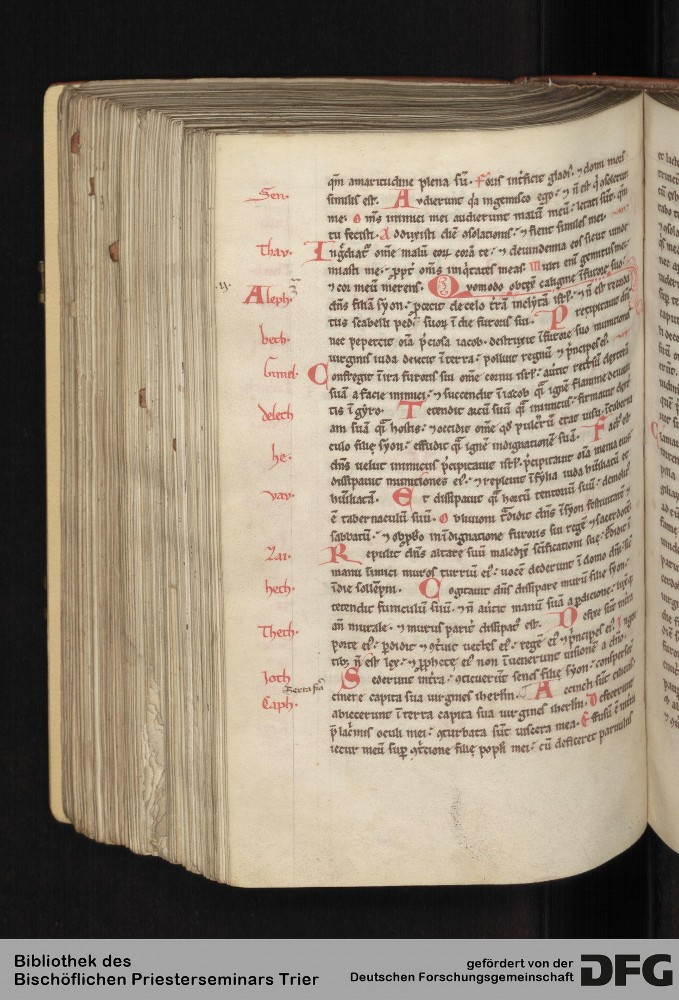 qm̄ amaritudine plena sū. Foris int̄ficit gladi᷒. ⁊ domi mors
Sen.
similis est. Audierunt q̄a ingemisco ego. ⁊ n̄ est q̄ ꝯsoletur
me. om̄s inimici mei audierunt malū meū. letati sūt. qm̄
tu fecisti. Adduxisti diē ꝯsolationis. ⁊ fient similes mei.
Thav.
Ingrediat᷑ om̄e malū eoꝝ corā te. ⁊ deuindemia eos sicut uindemiasti me. ꝓpt̄ om̄s iniq̇tates meas. Multi eni gemitus mei.
⁊ cor meū merens. Quomodo obtex̄ caligine ī furore suo
Aleph.
dn̄s filiā syon. ꝓiecit de celo t̄rā inclytā isrl̄. ⁊ n̄ est recordatus scabelli pedū suoꝝ ī die furoris sui. Precipitauit dn̄s
beth.
nec pepercit om̄a sp̄ciosa iacob. destruxit ī furore suo munitiones
uirginis iuda deiecit ī terra. polluit regnū ⁊ p̄ncipes ei᷒.
Gimel.
Confregit ī ira furoris sui om̄e cornu isrl̄. auertit retrorsū dexterā
suā a facie inimici. ⁊ succendit ī iacob q̄si ignē flamme deuorantis ī gyro. Tetendit arcū suū q̄si inimicus. firmauit dexteram
deleth
suā q̄si hostis. ⁊ occidit om̄e qd̄ pulcrū erat uisu ī tabernaculo filie syon. effudit q̄si ignē indignationē suā. Fact᷒ est
he.
dn̄s uelut inimicus. p̄cipitauit isrl̄. p̄cipitauit om̄a menia eius
dissipauit munitiones ei᷒. ⁊ repleuit ī filia iuda humiliatū et
vav.
humiliatā. Et dissipauit q̄si hortū tentoriū suū. demolitus
ē tabernaculū suū. obliuioni tradidit dn̄s ī syon festiuitatē ⁊
sabbatū. ⁊ obprobrio in indignatione furoris sui regē ⁊ sacerdotē
Zai.
Reppulit dn̄s altare suū maledixit sc̄ificationi sue. tradidit ī
manu inimici muros turriū ei᷒. uocē dederunt ī domo dn̄i. sic
heth.
ī die sollēpni. Cogitauit dn̄s dissipare murū filie syon.
tetendit funiculū suū. ⁊ n̄ auertit manū suā a perdicione. luxitq̄
Theth.
antemurale. ⁊ murus parit̄ dissipat᷒ est. Defixe sūt ī terra
porte ei᷒. perdidit ⁊ ꝯtriuit uectes ei᷒. regē ei᷒ ⁊ p̄ncipes ei᷒ ī gentibus. n̄ est lex. ⁊ ꝓphete ei᷒ non ī uenerunt uisionē a dn̄o.
Joth
Sederunt ī terra. ꝯticuerūt senes filie syon. consperserunt
Sexta fia
cinere capita sua uirgines iherlm̄. Accincti sūt ciliciis
Caph.
abiecerunt ī terra capita sua uirgines iherlm̄. Defecerunt
p̄ lacrimis oculi mei. ꝯturbata sūt uiscera mea. Effusū ē ī terra
iecur meū super ꝯtritione filie popli mei. cū deficeret paruulus
Bibliothek des
Bischöflichen Priesterseminars Trier
gefördert von der
Deutschen Forschungsgemeinschaft
DFG